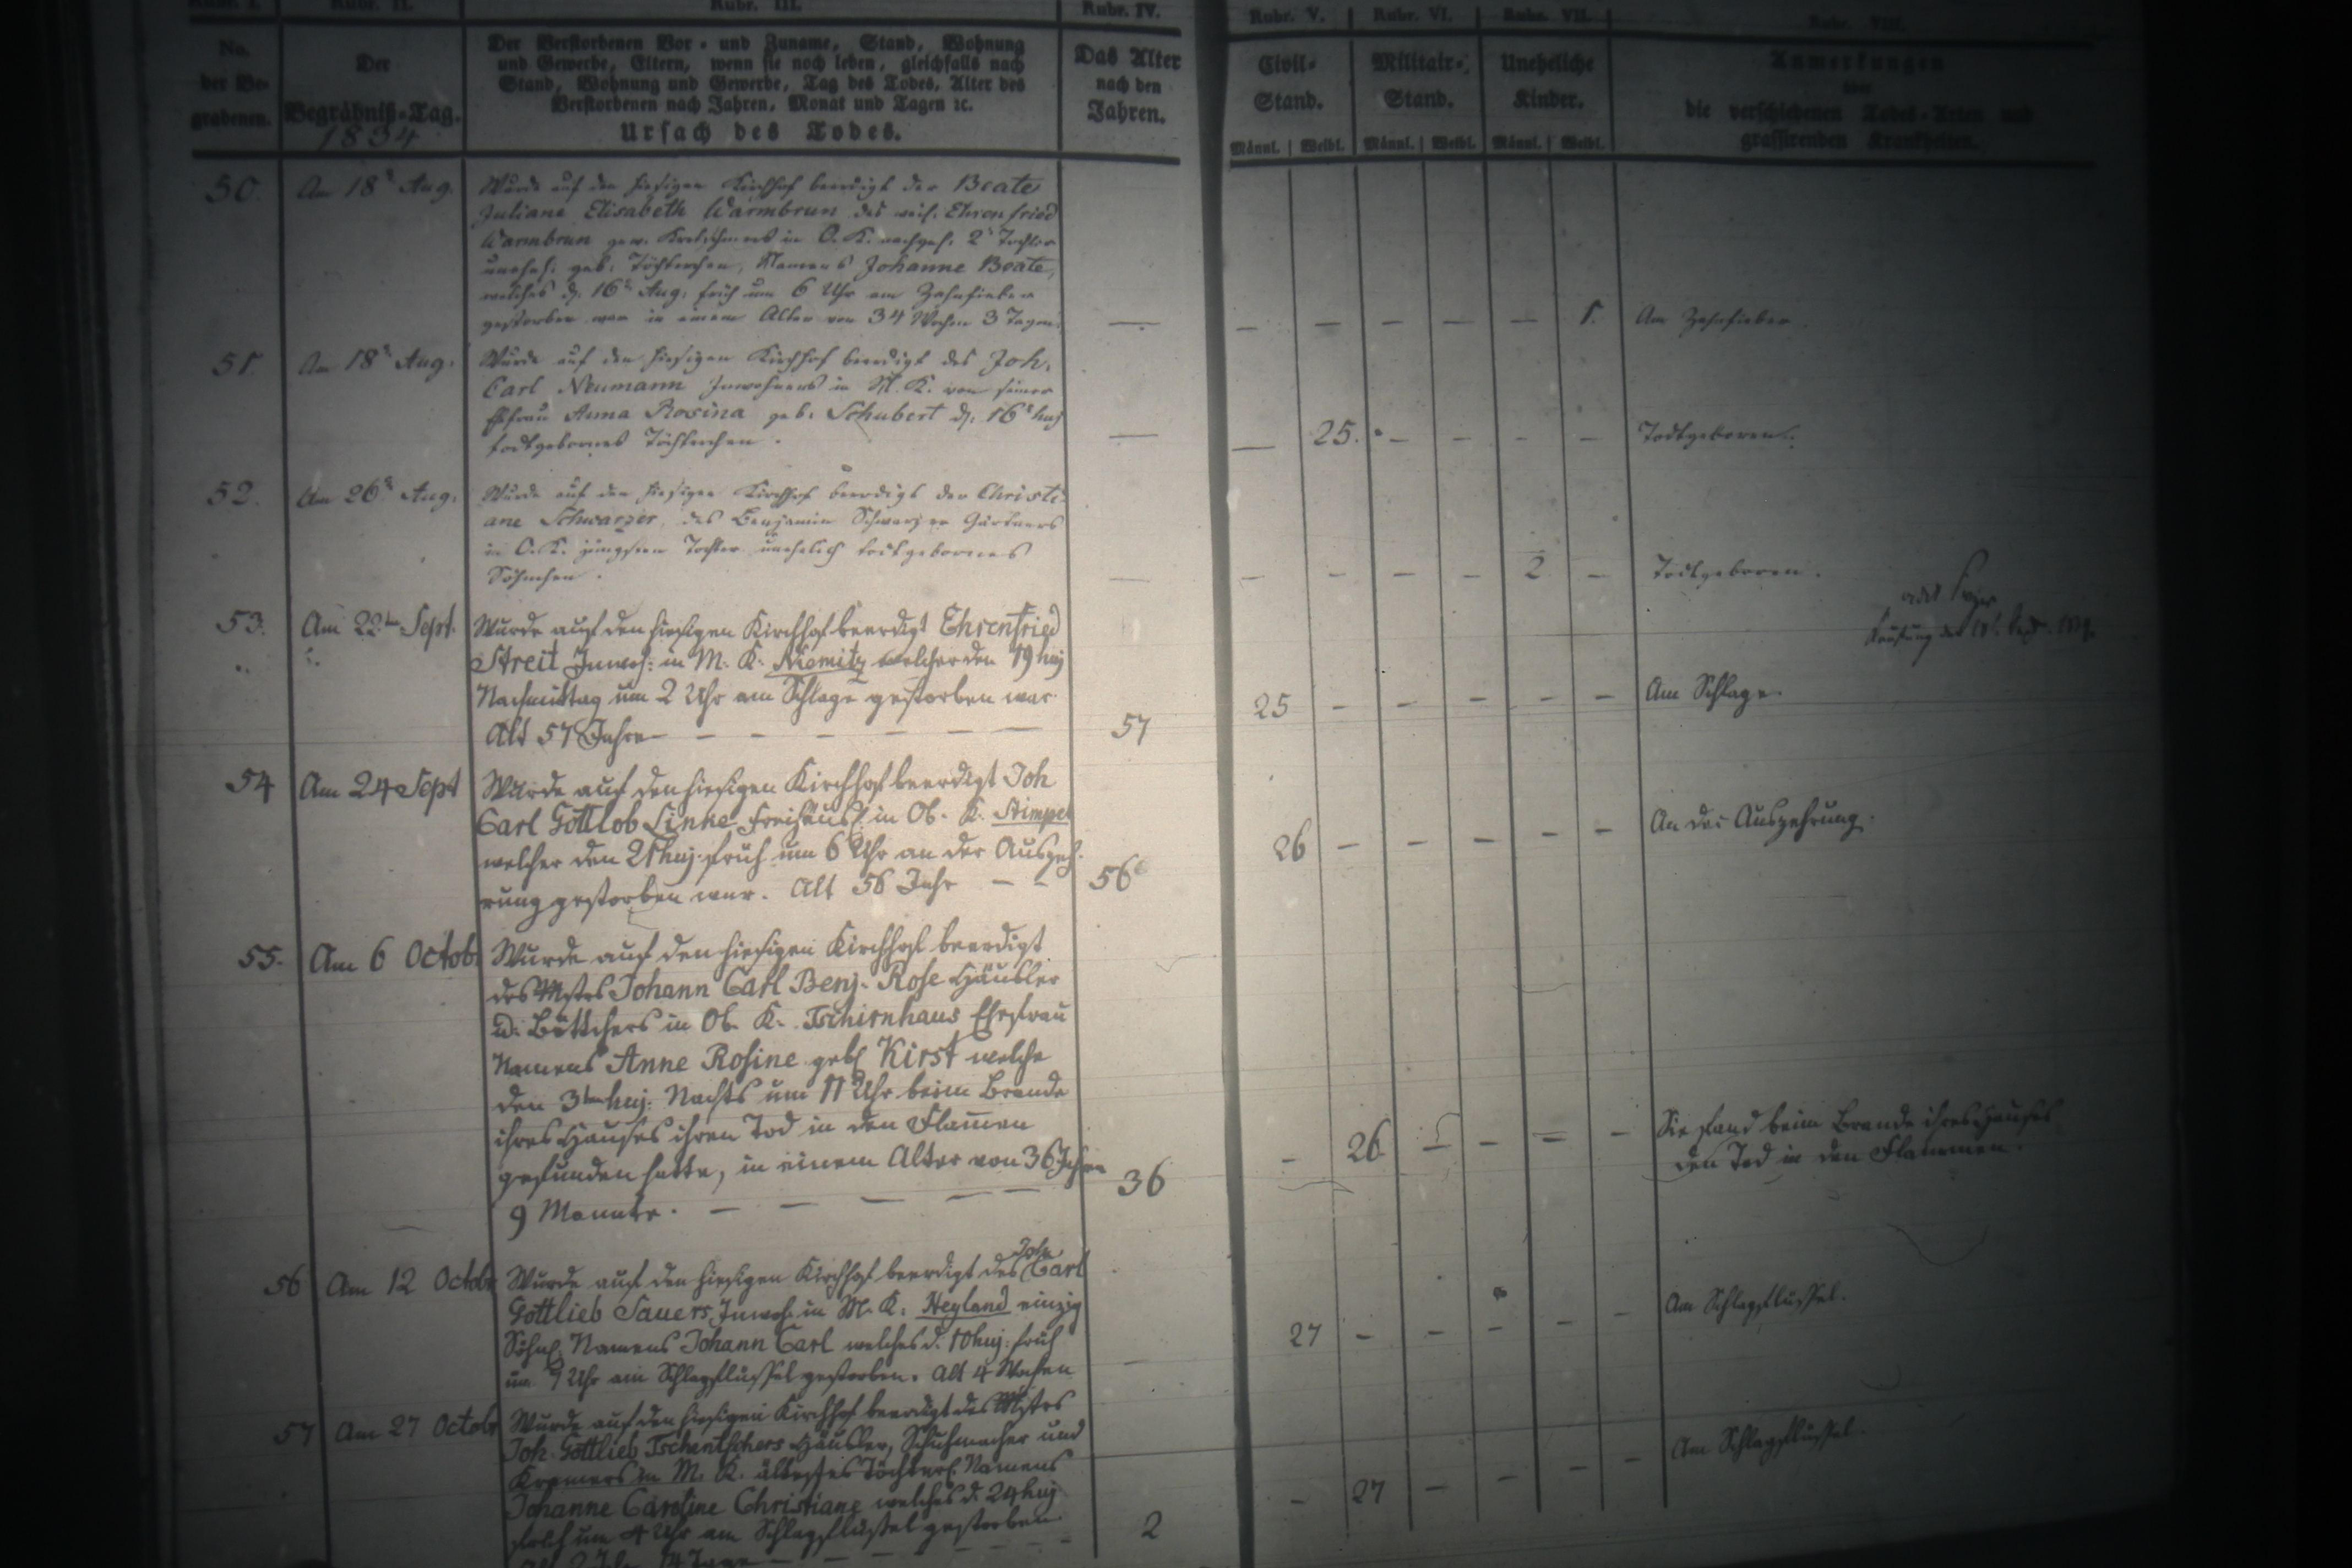 Rubr. I. Rubr. II. Rubr. III. Rubr. IV. Rubr. V. Rubr. VI. Rubr. VII. Rubr. VIII.
No. der Be-grabenen.
Der Begräbniß-Tag.
1834
Der Verstorbenen Vor- und Zuname, Stand, Wohnung
und Gewerbe, Eltern, wenn sie noch leben, gleichfalls nach
Stand, Wohnung und Gewerbe, Tag des Todes, Alter des
Verstorbenen nach Jahren, Monat und Tagen ꝛc.
Ursach des Todes.
Das Alter
nach den
Jahren.
Civil-
Stand.
Militair-
Stand.
Uneheliche
Kinder.
Männl. Weibl. Männl. Weibl. Männl. Weibl.
Anmerkungen
über
die verschiedenen Todes-Arten und
grassirenden Krankheiten.
50. Am 18t Aug. Wurde auf den hiesigen Kirchhof beerdigt der Beate
Juliane Elisabeth Warmbrun des weil. Ehrenfried
Warmbrun gew. Kretschmers in O. K. nachgel. 2t Tochter
unehel. geb. Töchterchen, Namens Johanne Beate,
welches d. 16t Aug. früh um 6 Uhr am Zahnfieber
gestorben war in einem Alter von 34 Wochen 3 Tagen.
— — — — — — — 1. Am Zahnfieber.
51. Am 18t Aug. Wurde auf den hiesigen Kirchhof beerdigt des Joh.
Carl Neumann Inwohners in M. K. von seiner
Ehefrau Anna Rosina geb. Schubert d. 16t huj
todtgebornes Töchterchen.
— — 25. — — — — Todtgeboren.
52. Am 26t Aug. Wurde auf den hiesigen Kirchhof beerdigt der Christi-
ane Schwarzer, des Benjamin Schwarzer Gärtners
in O. K. jüngsten Tochter unehelich todtgebornes
Söhnchen.
— — — — — 2 — Todtgeboren.
53. Am 22ten Sept. Wurde auf den hiesigen Kirchhof beerdigt Ehrenfried
Streit Inwoh: in M. K. Niemitz welcher den 19 huj
Nachmittag um 2 Uhr am Schlage gestorben war.
Alt 57 Jahre — — — — — —
57 25 — — — — — Am Schlage.
54 Am 24 Sept Wurde auf den hiesigen Kirchhof beerdigt Joh
Carl Gottlob Linke Freihäusl. in Ob. K. Stimpel
welcher den 21 huj. früh um 6 Uhr an der Auszeh-
rung gestorben war. Alt 56 Jahr — —
56 26 — — — — — An der Auszehrung.
55. Am 6 Octob. Wurde auf den hiesigen Kirchhof beerdigt
des Mstrs Johann Carl Benj. Rose Häusler
u. Böttchers in Ob. K. Tschirnhaus Ehefrau
Namens Anne Rosine geb. Kirst welche
den 3ten huj. Nachts um 11 Uhr beim Brande
ihres Hauses ihren Tod in den Flam̄en
gefunden hatte, in einem Alter von 36 Jahren
9 Monate. — — — — —
36 — 26 — — — — Sie fand beim Brande ihres Hauses
den Tod in den Flammen.
56 Am 12 Octobr Wurde auf den hiesigen Kirchhof beerdigt des Joh. Carl
Gottlieb Sauers Inwoh. in M. K. Heyland einzig
Söhnl. Namens Johann Carl welches d. 10 huj. früh
um 9 Uhr am Schlagflussel gestorben. Alt 4 Wochen
— 27 — — — — — Am Schlagflussel.
57 Am 27 Octobr Wurde auf den hiesigen Kirchhof beerdigt des Mstrs
Joh. Gottlieb Tschentschers Häusler, Schuhmacher und
Kramers in M. K. ältestes Töchterl. Namens
Johanne Caroline Christiane welches d. 24 huj
früh um 4 Uhr am Schlagflussel gestorben.
Alt 2 Jahr 14 Tage — — — — —
2 — 27 — — — — Am Schlagflussel.